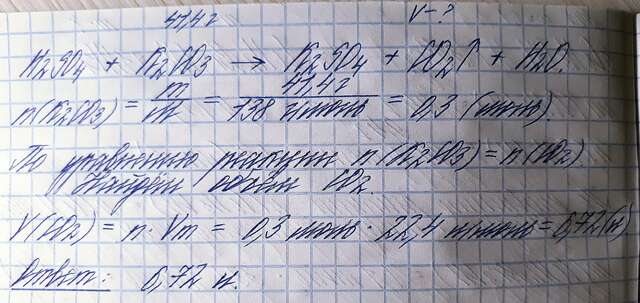 41,4 г V-?
K2SO4 + K2CO3 → K2SO4 + CO2↑ + H2O.
n(K2CO3) = m/M = 41,4 г/138 г/моль = 0,3 (моль).
По уравнению реакции n(K2CO3) = n(CO2)
Найдём объём CO2.
V(CO2) = n · Vm = 0,3 моль · 22,4 л/моль = 6,72 (л)
Ответ: 6,72 л.